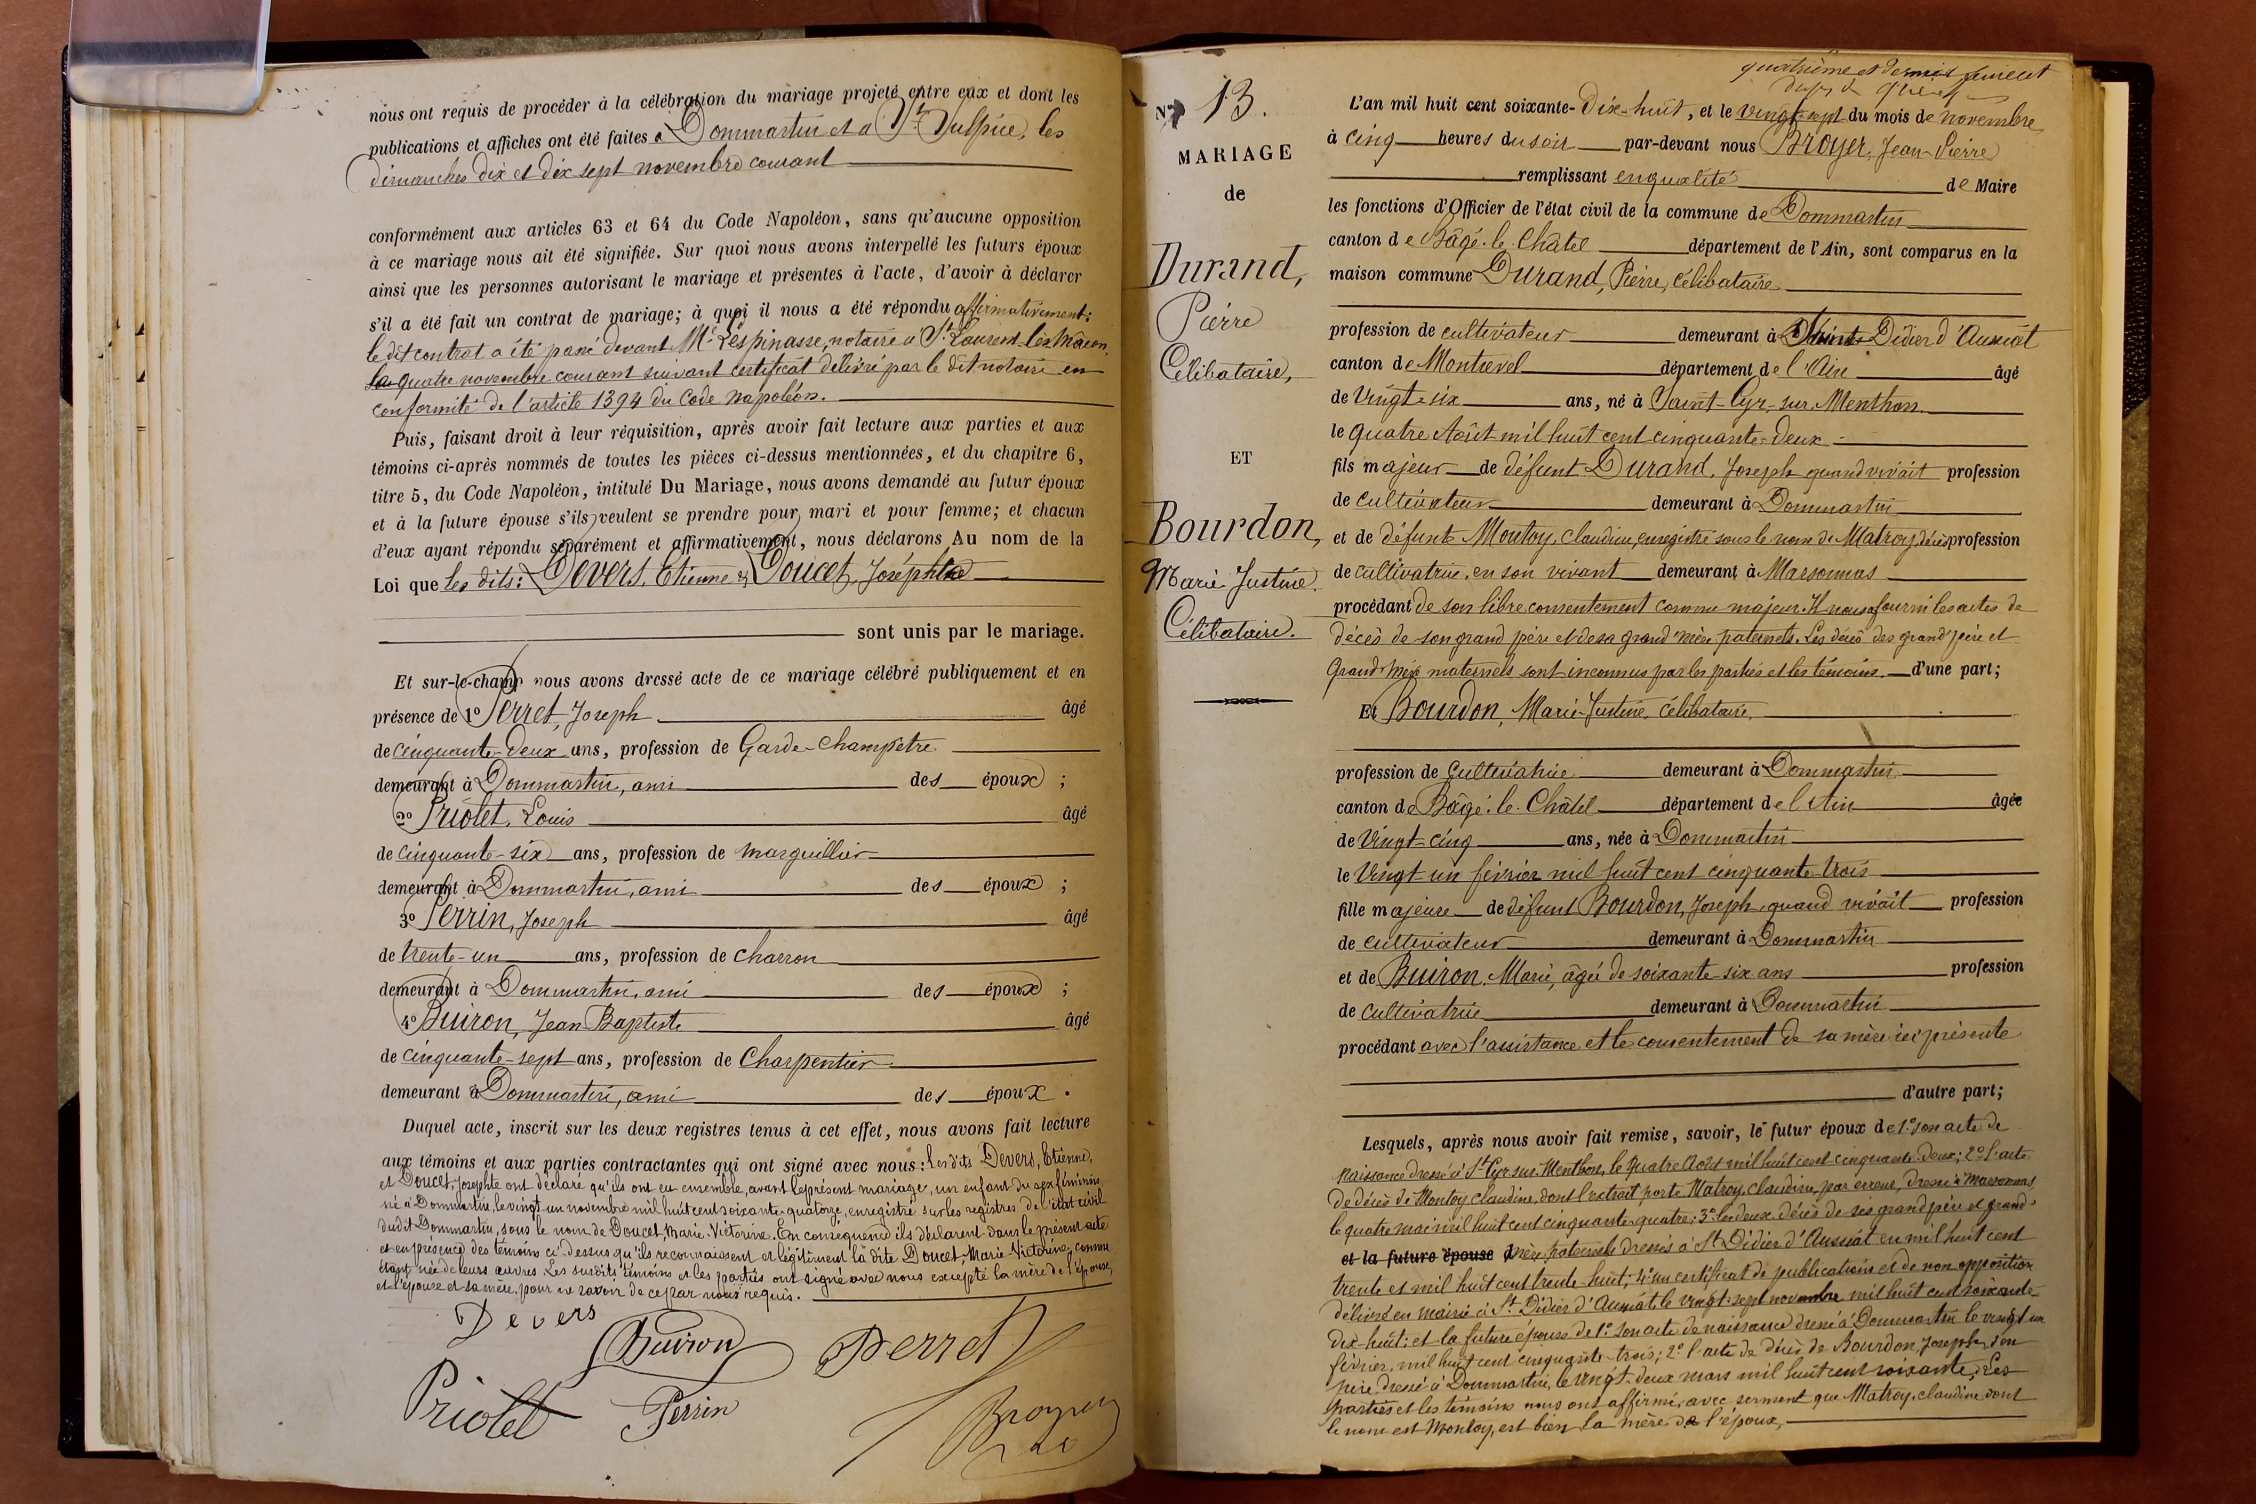 nous ont requis de procéder à la célébration du mariage projeté entre eux et dont les
publications et affiches ont été faites à Dommartin et à St Sulpice, les
dimanches dix et dix sept novembre courant
conformément aux articles 63 et 64 du Code Napoléon, sans qu'aucune opposition
à ce mariage nous ait été signifiée. Sur quoi nous avons interpellé les futurs époux
ainsi que les personnes autorisant le mariage et présentes à l'acte, d'avoir à déclarer
s'il a été fait un contrat de mariage; à quoi il nous a été répondu affirmativement;
le dit contrat a été passé devant Me Lespinasse, notaire à St Laurent-lès-Mâcon,
le quatre novembre courant suivant certificat délivré par le dit notaire en
conformité de l'article 1394 du Code Napoléon.
Puis, faisant droit à leur réquisition, après avoir fait lecture aux parties et aux
témoins ci-après nommés de toutes les pièces ci-dessus mentionnées, et du chapitre 6,
titre 5, du Code Napoléon, intitulé Du Mariage, nous avons demandé au futur époux
et à la future épouse s'ils veulent se prendre pour mari et pour femme; et chacun
d'eux ayant répondu séparément et affirmativement, nous déclarons Au nom de la
Loi que les dits: Devers, Etienne & Doucet, Joséphte
sont unis par le mariage.
Et sur-le-champ nous avons dressé acte de ce mariage célébré publiquement et en
présence de 1o Perret, Joseph âgé
de cinquante-deux ans, profession de Garde-Champêtre
demeurant à Dommartin, ami des époux ;
2o Priolet, Louis âgé
de cinquante-six ans, profession de marguillier
demeurant à Dommartin, ami des époux ;
3o Perrin, Joseph âgé
de trente-un ans, profession de charron
demeurant à Dommartin, ami des époux ;
4o Buiron, Jean Baptiste âgé
de cinquante-sept ans, profession de Charpentier
demeurant à Dommartin, ami des époux.
Duquel acte, inscrit sur les deux registres tenus à cet effet, nous avons fait lecture
aux témoins et aux parties contractantes qui ont signé avec nous: les dits Devers, Etienne,
et Doucet, Josephte ont déclaré qu'ils ont eu ensemble, avant le présent mariage, un enfant du sexe féminin,
né à Dommartin, le vingt un novembre mil huit cent soixante quatorze, enregistré sur les registres de l'état civil
dudit Dommartin, sous le nom de Doucet, Marie-Victorine. En conséquence ils déclarent dans le présent acte
et en présence des témoins ci-dessus qu'ils reconnaissent et légitiment la dite Doucet, Marie Victorine, comme
étant née de leurs œuvres. Les susdits témoins et les parties ont signé avec nous excepté la mère de l'épouse,
et l'épouse et sa mère, pour ne savoir de ce par nous requis.
Devers
Buiron Perret
Priolet Perrin
Broyer
quatrième et dernier feuillet
No 13.
MARIAGE
de
Durand,
Pierre
Célibataire,
ET
Bourdon,
Marie Justine.
Célibataire.
L'an mil huit cent soixante-Dix-huit, et le vingt-sept du mois de novembre
à cinq heures du soir par-devant nous Broyer, Jean-Pierre
remplissant en qualité de Maire
les fonctions d'Officier de l'état civil de la commune de Dommartin
canton de Bâgé-le-Châtel département de l'Ain, sont comparus en la
maison commune Durand, Pierre, célibataire
profession de cultivateur demeurant à Saint-Didier d'Aussiat
canton de Montrevel département de l'Ain âgé
de Vingt-six ans, né à Saint-Cyr-sur-Menthon
le quatre Août mil huit cent cinquante-deux
fils majeur de défunt Durand, Joseph quand vivait profession
de cultivateur demeurant à Dommartin
et de défunte Montoy, Claudine, enregistré sous le nom de Matroy, décès profession
de cultivatrice, en son vivant demeurant à Marsonnas
procédant de son libre consentement comme majeur. Il nous a fourni les actes de
décès de son grand père et de sa grand'mère paternels. Les décès des grand'père et
Grand-mère maternels sont inconnus par les parties et les témoins. d'une part;
Et Bourdon, Marie-Justine, célibataire
profession de cultivatrice demeurant à Dommartin
canton de Bâgé-le-Châtel département de l'Ain âgée
de Vingt-cinq ans, née à Dommartin
le Vingt-un février mil huit cent cinquante-trois
fille majeure de défunt Bourdon, Joseph, quand vivait profession
de cultivateur demeurant à Dommartin
et de Buiron, Marie, âgée de soixante-six ans profession
de cultivatrice demeurant à Dommartin
procédant avec l'assistance et le consentement de sa mère ici présente
d'autre part;
Lesquels, après nous avoir fait remise, savoir, le futur époux de 1o son acte de
naissance dressé à St Cyr-sur-Menthon, le quatre Août mil huit cent cinquante-deux; 2o l'acte
de décès de Montoy Claudine, dont l'extrait porte Matroy, Claudine, par erreur, dressé à Marsonnas
le quatre mai mil huit cent cinquante-quatre; 3o les deux décès de ses grand père et grand'
et la future épouse d mère paternels dressés à St Didier d'Aussiat en mil huit cent
trente et mil huit cent trente-huit; 4o un certificat de publications et de non opposition
délivré en mairie à St Didier d'Aussiat, le vingt-sept novembre mil huit cent soixante
dix-huit; et la future épouse de 1o son acte de naissance dressé à Dommartin le vingt un
février, mil huit cent cinquante-trois; 2o l'acte de décès de Bourdon, Joseph, son
père, dressé à Dommartin, le vingt-deux mars mil huit cent soixante. Les
parties et les témoins nous ont affirmé, avec serment que Matroy, Claudine dont
le nom est Montoy, est bien la mère de l'époux,